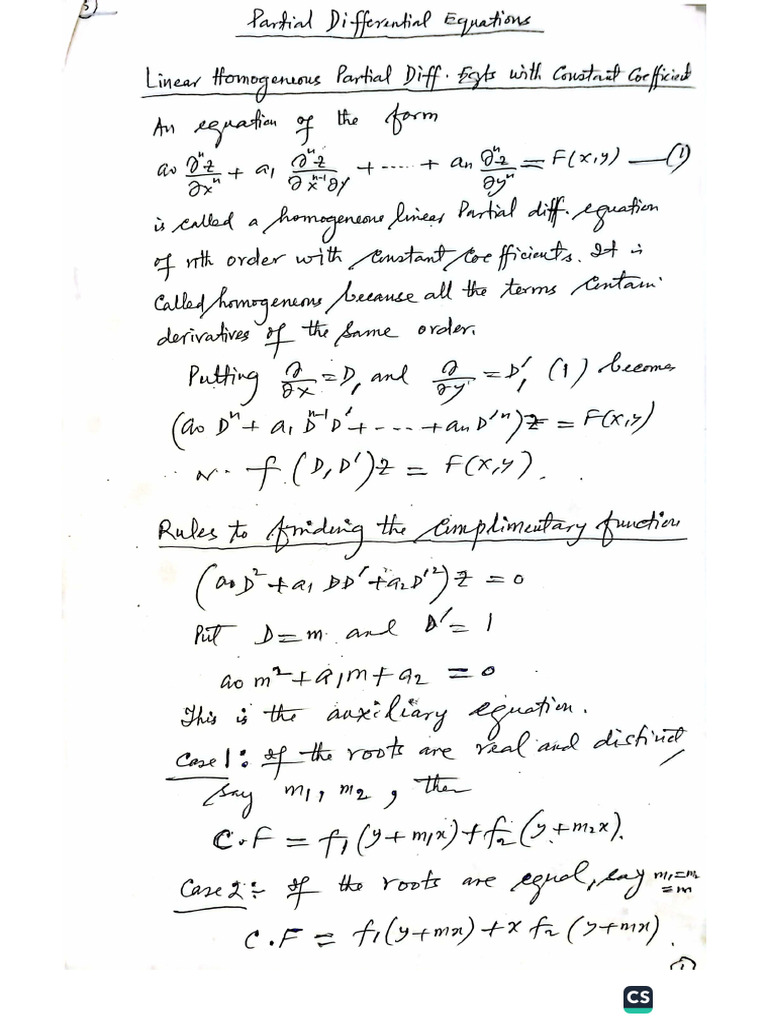 3)
Partial Differential Equations
Linear Homogeneous Partial Diff. Eqts with Constant Coefficient
An equation of the form
a₀ ∂ⁿz/∂xⁿ + a₁ ∂ⁿz/∂xⁿ⁻¹∂y + ----- + aₙ ∂ⁿz/∂yⁿ = F(x,y) —(1)
is called a homogeneous linear Partial diff. equation
of nth order with Constant Coefficients. It is
Called homogeneous because all the terms Contain
derivatives of the Same order.
Putting ∂/∂x = D, and ∂/∂y = D', (1) becomes
(a₀ Dⁿ + a₁ Dⁿ⁻¹D' + ---- + aₙ D'ⁿ)z = F(x,y)
or f (D, D')z = F(x,y).
Rules to finiding the Complimentary function
(a₀D² + a₁ DD' + a₂D'²) z = 0
Put D = m and D' = 1
a₀ m² + a₁m + a₂ = 0
This is the auxiliary equation.
Case 1: If the roots are real and distinct
say m₁, m₂, then
C.F = f₁(y+m₁x) + f₂(y+m₂x).
Case 2:- If the roots are equal, say m₁=m₂
=m
C.F = f₁(y+mx) + x f₂(y+mx).
1
CS